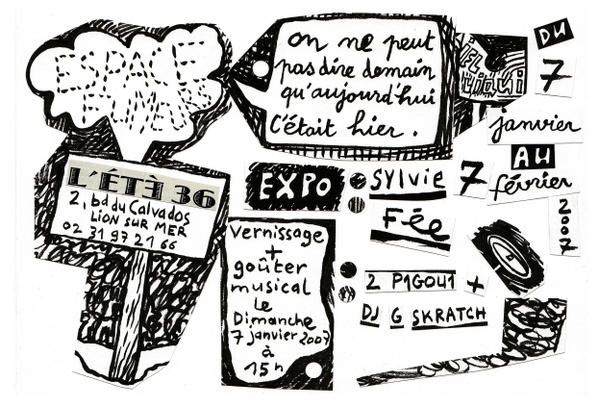 ESPACE
on ne peut
pas dire demain
qu'aujourd'hui
c'était hier.
DU
7
janvier
AU
7 février
2007
L'ÉTÈ 36
2, bd du Calvados
LION SUR MER
02 31 97 21 66
EXPO
SYLVIE
FÉE
Vernissage
+
goûter
musical
le
Dimanche
7 janvier 2007
à
15h
2 P1GOU1 +
DJ G SKRATCH